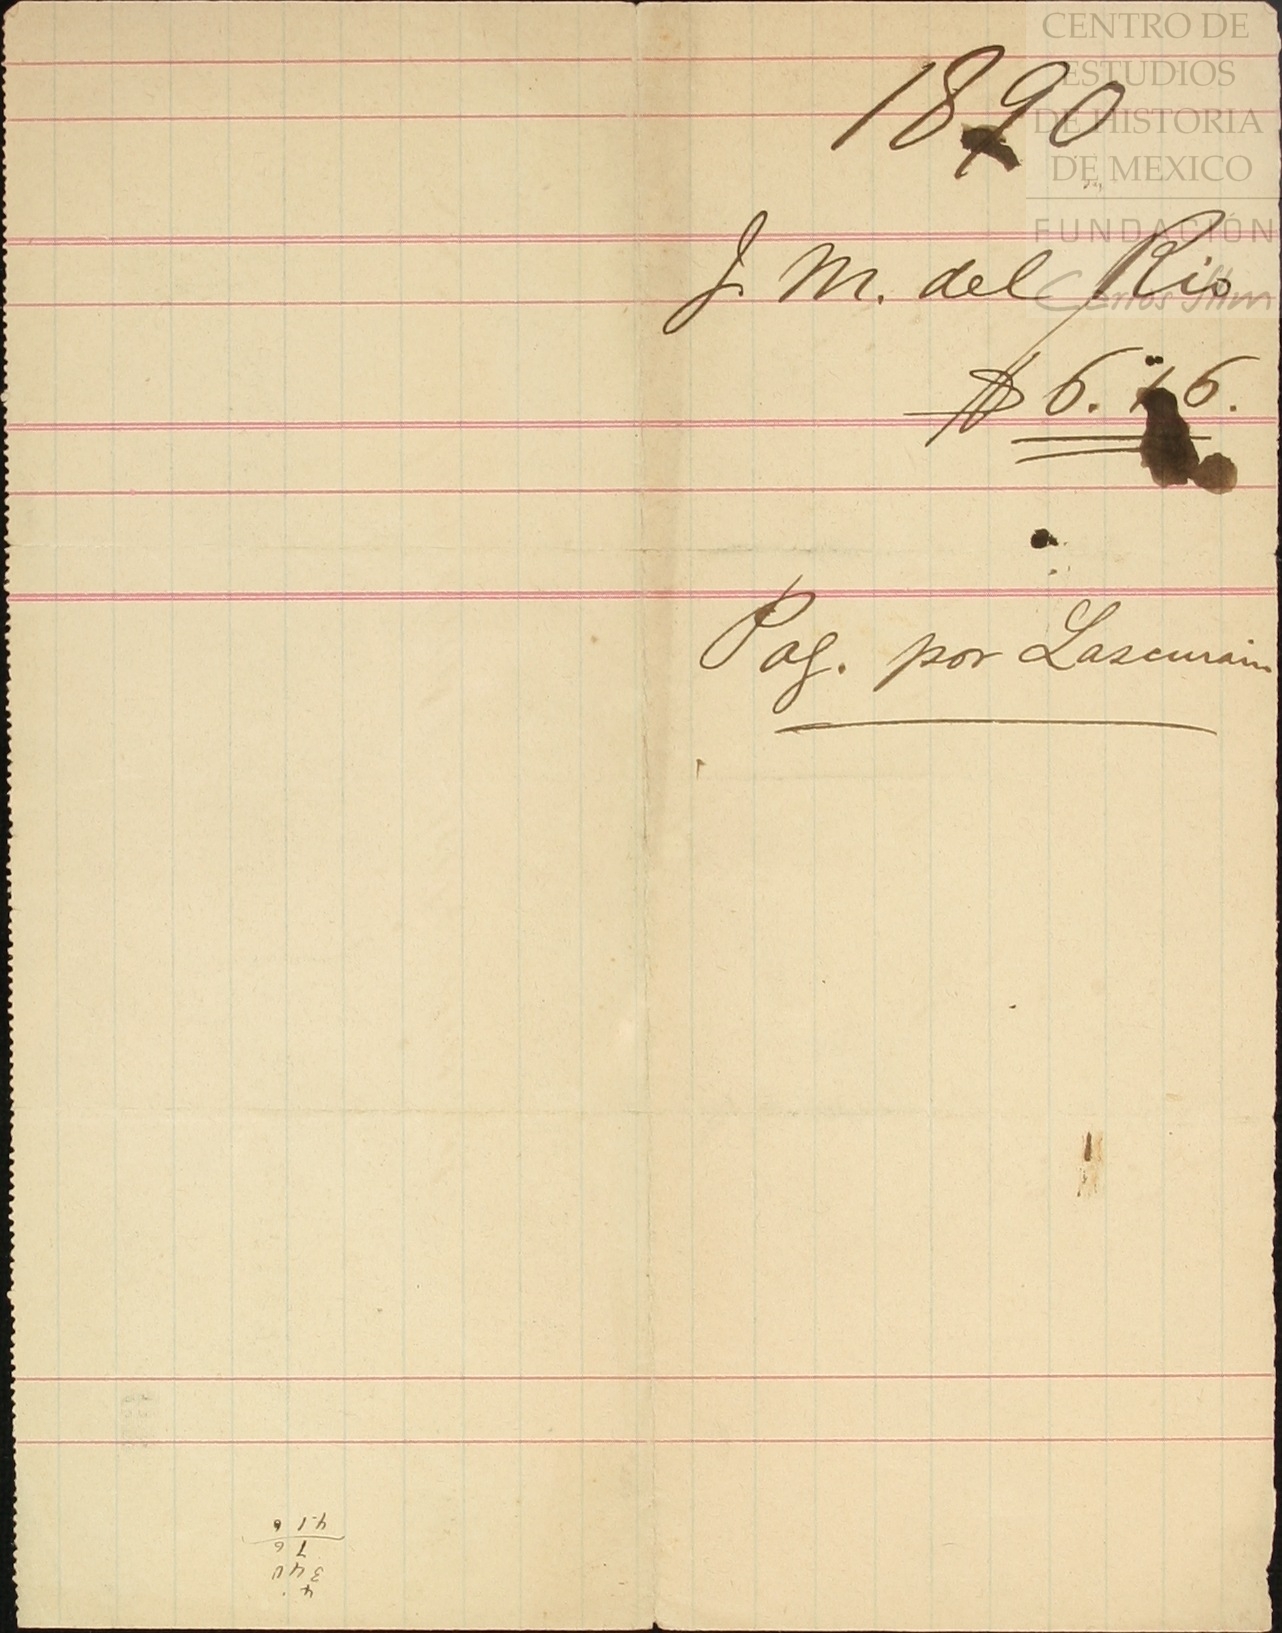 CENTRO DE
ESTUDIOS
DE HISTORIA
DE MEXICO
FUNDACIÓN
Carlos Slim
1890
J. M. del Rio
$ 6.16.
Pag. por Lascurain
4
340
7 6
4.1 6